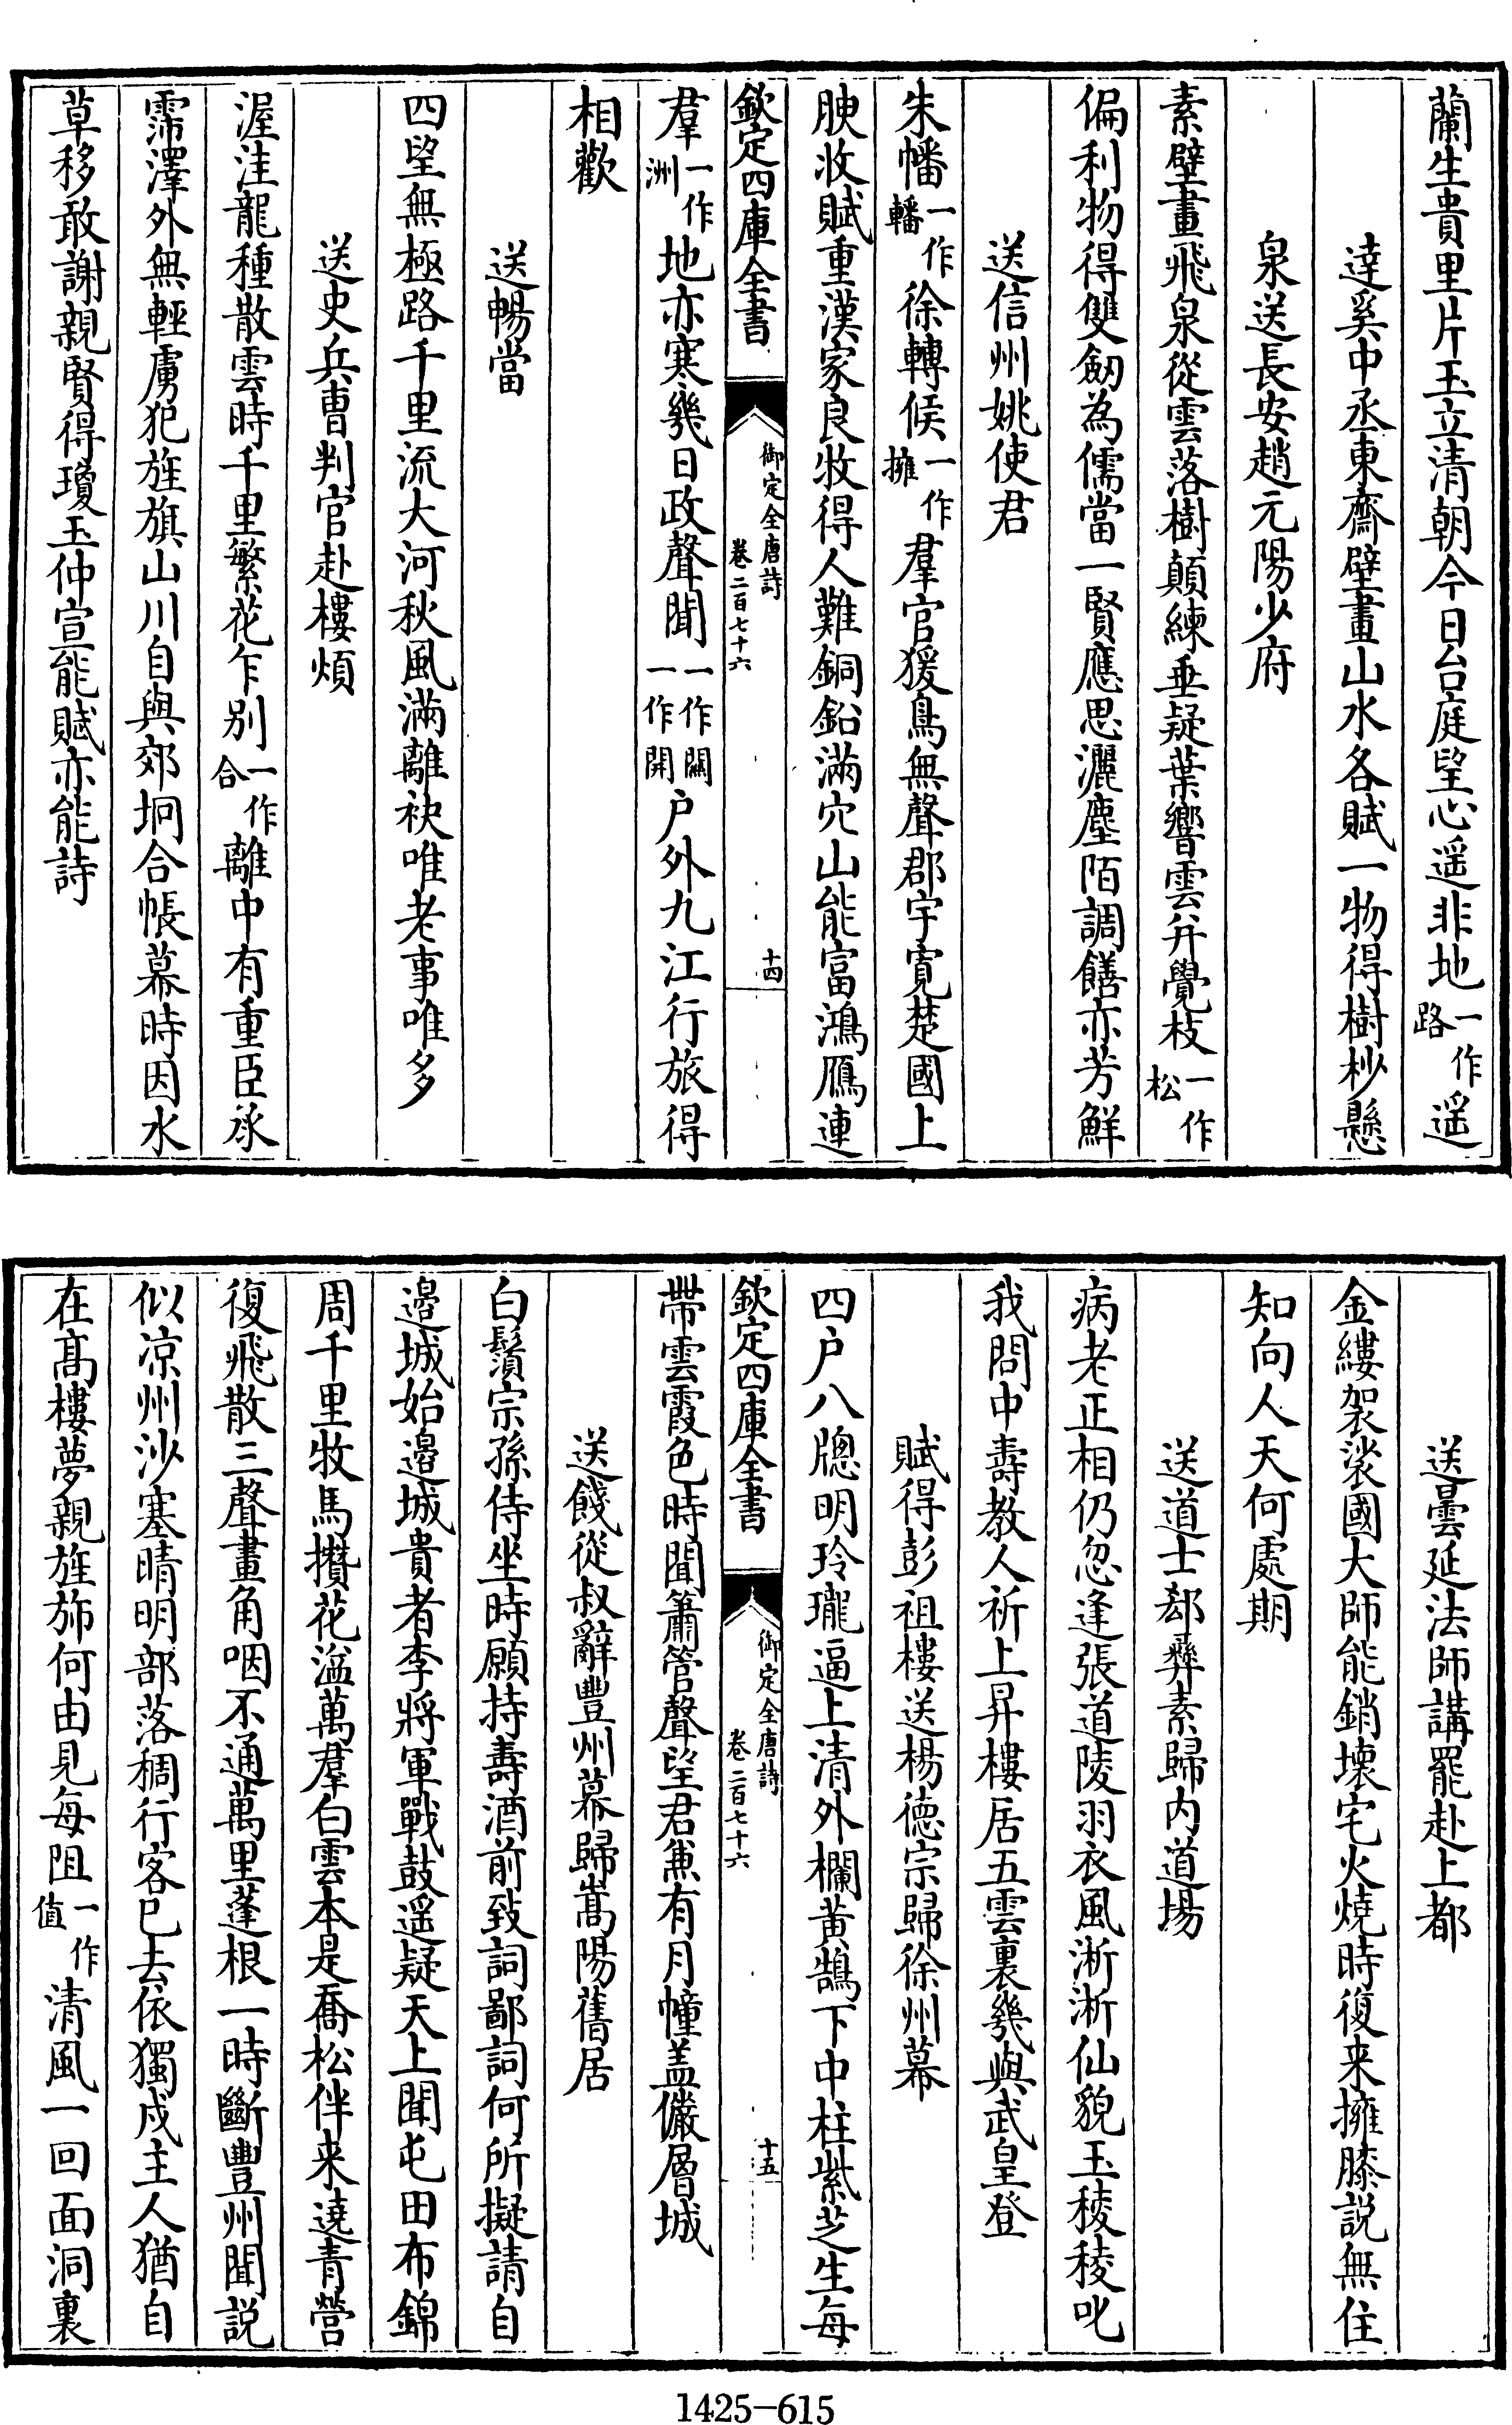 蘭生貴里片玉立清朝今日台庭望心遥非地一作路遥
逹奚中丞東齋壁畫山水各賦一物得樹杪懸
泉送長安趙元陽少府
素壁畫飛泉從雲落樹顛練垂疑葉響雲并覺枝一作松
偏利物得雙劒為儒當一賢應思灑塵陌調饍亦芳鮮
送信州姚使君
朱幡一作轓徐轉候一作擁羣官猨鳥無聲郡宇寛楚國上
腴收賦重漢家良牧得人難銅鉛滿穴山能富鴻鴈連
欽定四庫全書
御定全唐詩
卷二百七十六
十四
羣一作洲地亦寒幾日政聲聞一作關一作開户外九江行旅得
相歡
送暢當
四望無極路千里流大河秋風滿離袂唯老事唯多
送史兵曹判官赴樓煩
渥洼龍種散雲時千里繁花乍别一作合離中有重臣承
霈澤外無輕虜犯旌旗山川自與郊坰合帳幕時因水
草移敢謝親賢得瓊玉仲宣能賦亦能詩
送曇延法師講罷赴上都
金縷袈裟國大師能銷壞宅火燒時復来擁膝説無住
知向人天何處期
送道士郄彝素歸内道場
病老正相仍忽逢張道陵羽衣風淅淅仙貌玉稜稜叱
我問中壽教人祈上昇樓居五雲裏幾與武皇登
賦得彭祖樓送楊德宗歸徐州幕
四户八牕明玲瓏逼上清外欄黄鵠下中柱紫芝生每
欽定四庫全書
御定全唐詩
卷二百七十六
十五
帶雲霞色時聞簫管聲望君兼有月幢盖儼層城
送餞從叔辭豐州幕歸嵩陽舊居
白鬚宗孫侍坐時願持壽酒前致詞鄙詞何所擬請自
邉城始邉城貴者李將軍戰鼓遥疑天上聞屯田布錦
周千里牧馬攢花溢萬羣白雲本是喬松伴来遶青營
復飛散三聲畫角咽不通萬里蓬根一時斷豐州聞説
似凉州沙塞晴明部落稠行客已去依獨戍主人猶自
在髙樓夢親旌斾何由見每阻一作值清風一回面洞裏
1425-615